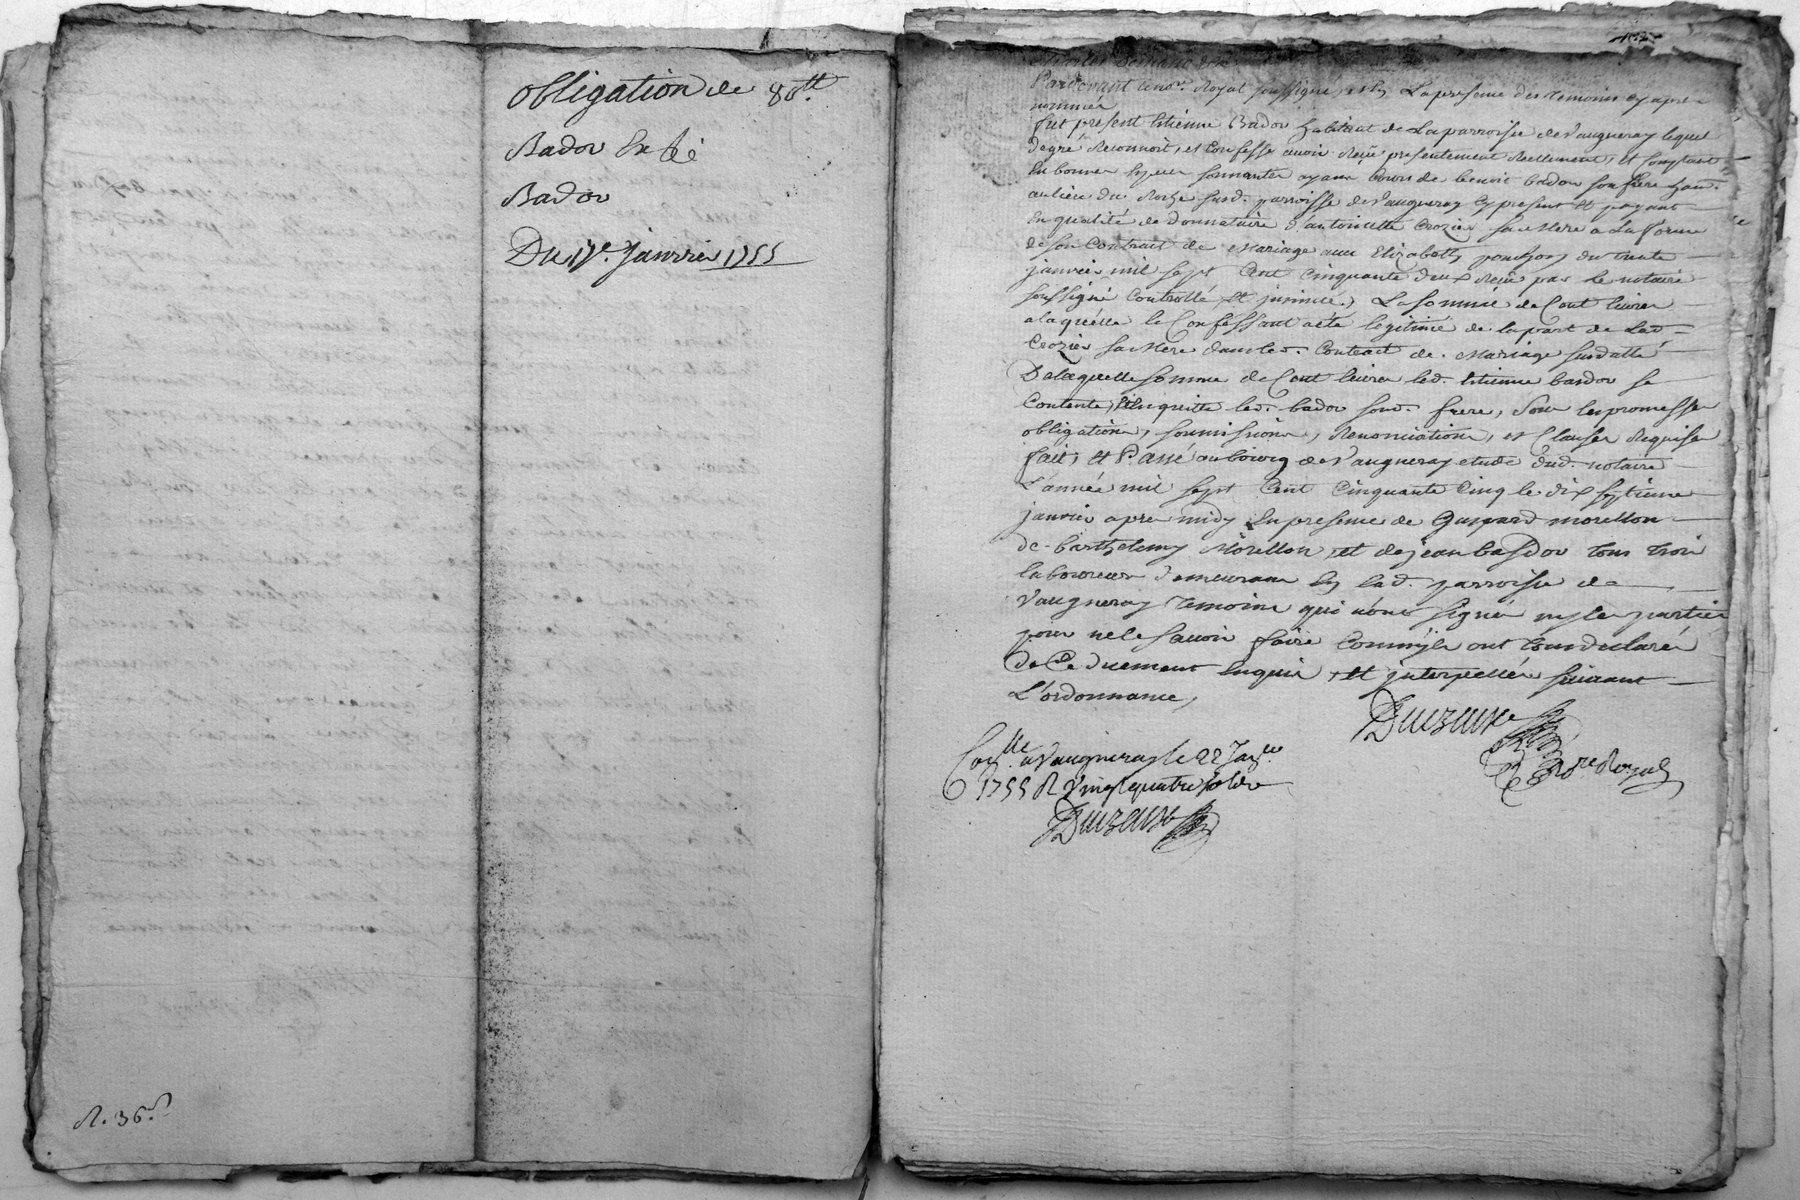 Obligation de 80.tt
Bador
Bador
Du 17e. Janvier 1755
R. 36.s
Pardevant le no.re Royal soussigné, et en La presence des temoins cy apres
nommés
fut present Etienne Bador habitant de La parroisse de Vaugneray lequel
de gré Reconnoit, et Confesse avoir Reçu presentement Reellement, et Comptant
En bonnes Especes sonnantes ayant Cours de benoit bador son frere hant.
au lieu du Rozhe susd. parroisse de Vaugneray cy present et payant
En qualité de Donnataire d'antoinette Crozier sa Mere a La forme
de son Contract de Mariage avec Elizabeth ponchon du trente
janvier mil sept Cent Cinquante deux Reçu par le notaire
soussigné Controllé, et insinué, La somme de Cent livres
a laquelle le Confessant a été legitimé de la part de Lad.
Crozier sa Mere dans led. Contract de Mariage susdatté
De laquelle somme de Cent livres led. Etienne bador se
Contente, Et En quitte led. bador sond. frere, Sous les promesses
obligations, soumissions, Renonciations, et Clauses Requises
fait, Et Passé au bourg de Vaugneray etude dud. notaire
L'année mil sept Cent Cinquante Cinq le dix septieme
janvier apres midy En presence de Gaspard morellon
de Barthelemy Morellon, et de jean bador tous trois
laboureurs demeurans En lad. parroisse de
Vaugneray temoins qui n'ont signé ny les parties
pour ne le savoir faire Comm'ils ont tous declaré
de Ce duement Enquis, Et interpellés suivant
L'ordonnance,
No.re Royal
Con.lle a Vaugneray le 22 Janv.er
1755 R Vingt quatre sols